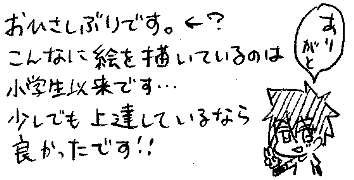 おひさしぶりです。←?
こんなに絵を描いているのは
小学生以来です…
少しでも上達しているなら
良かったです!!
あり
がと